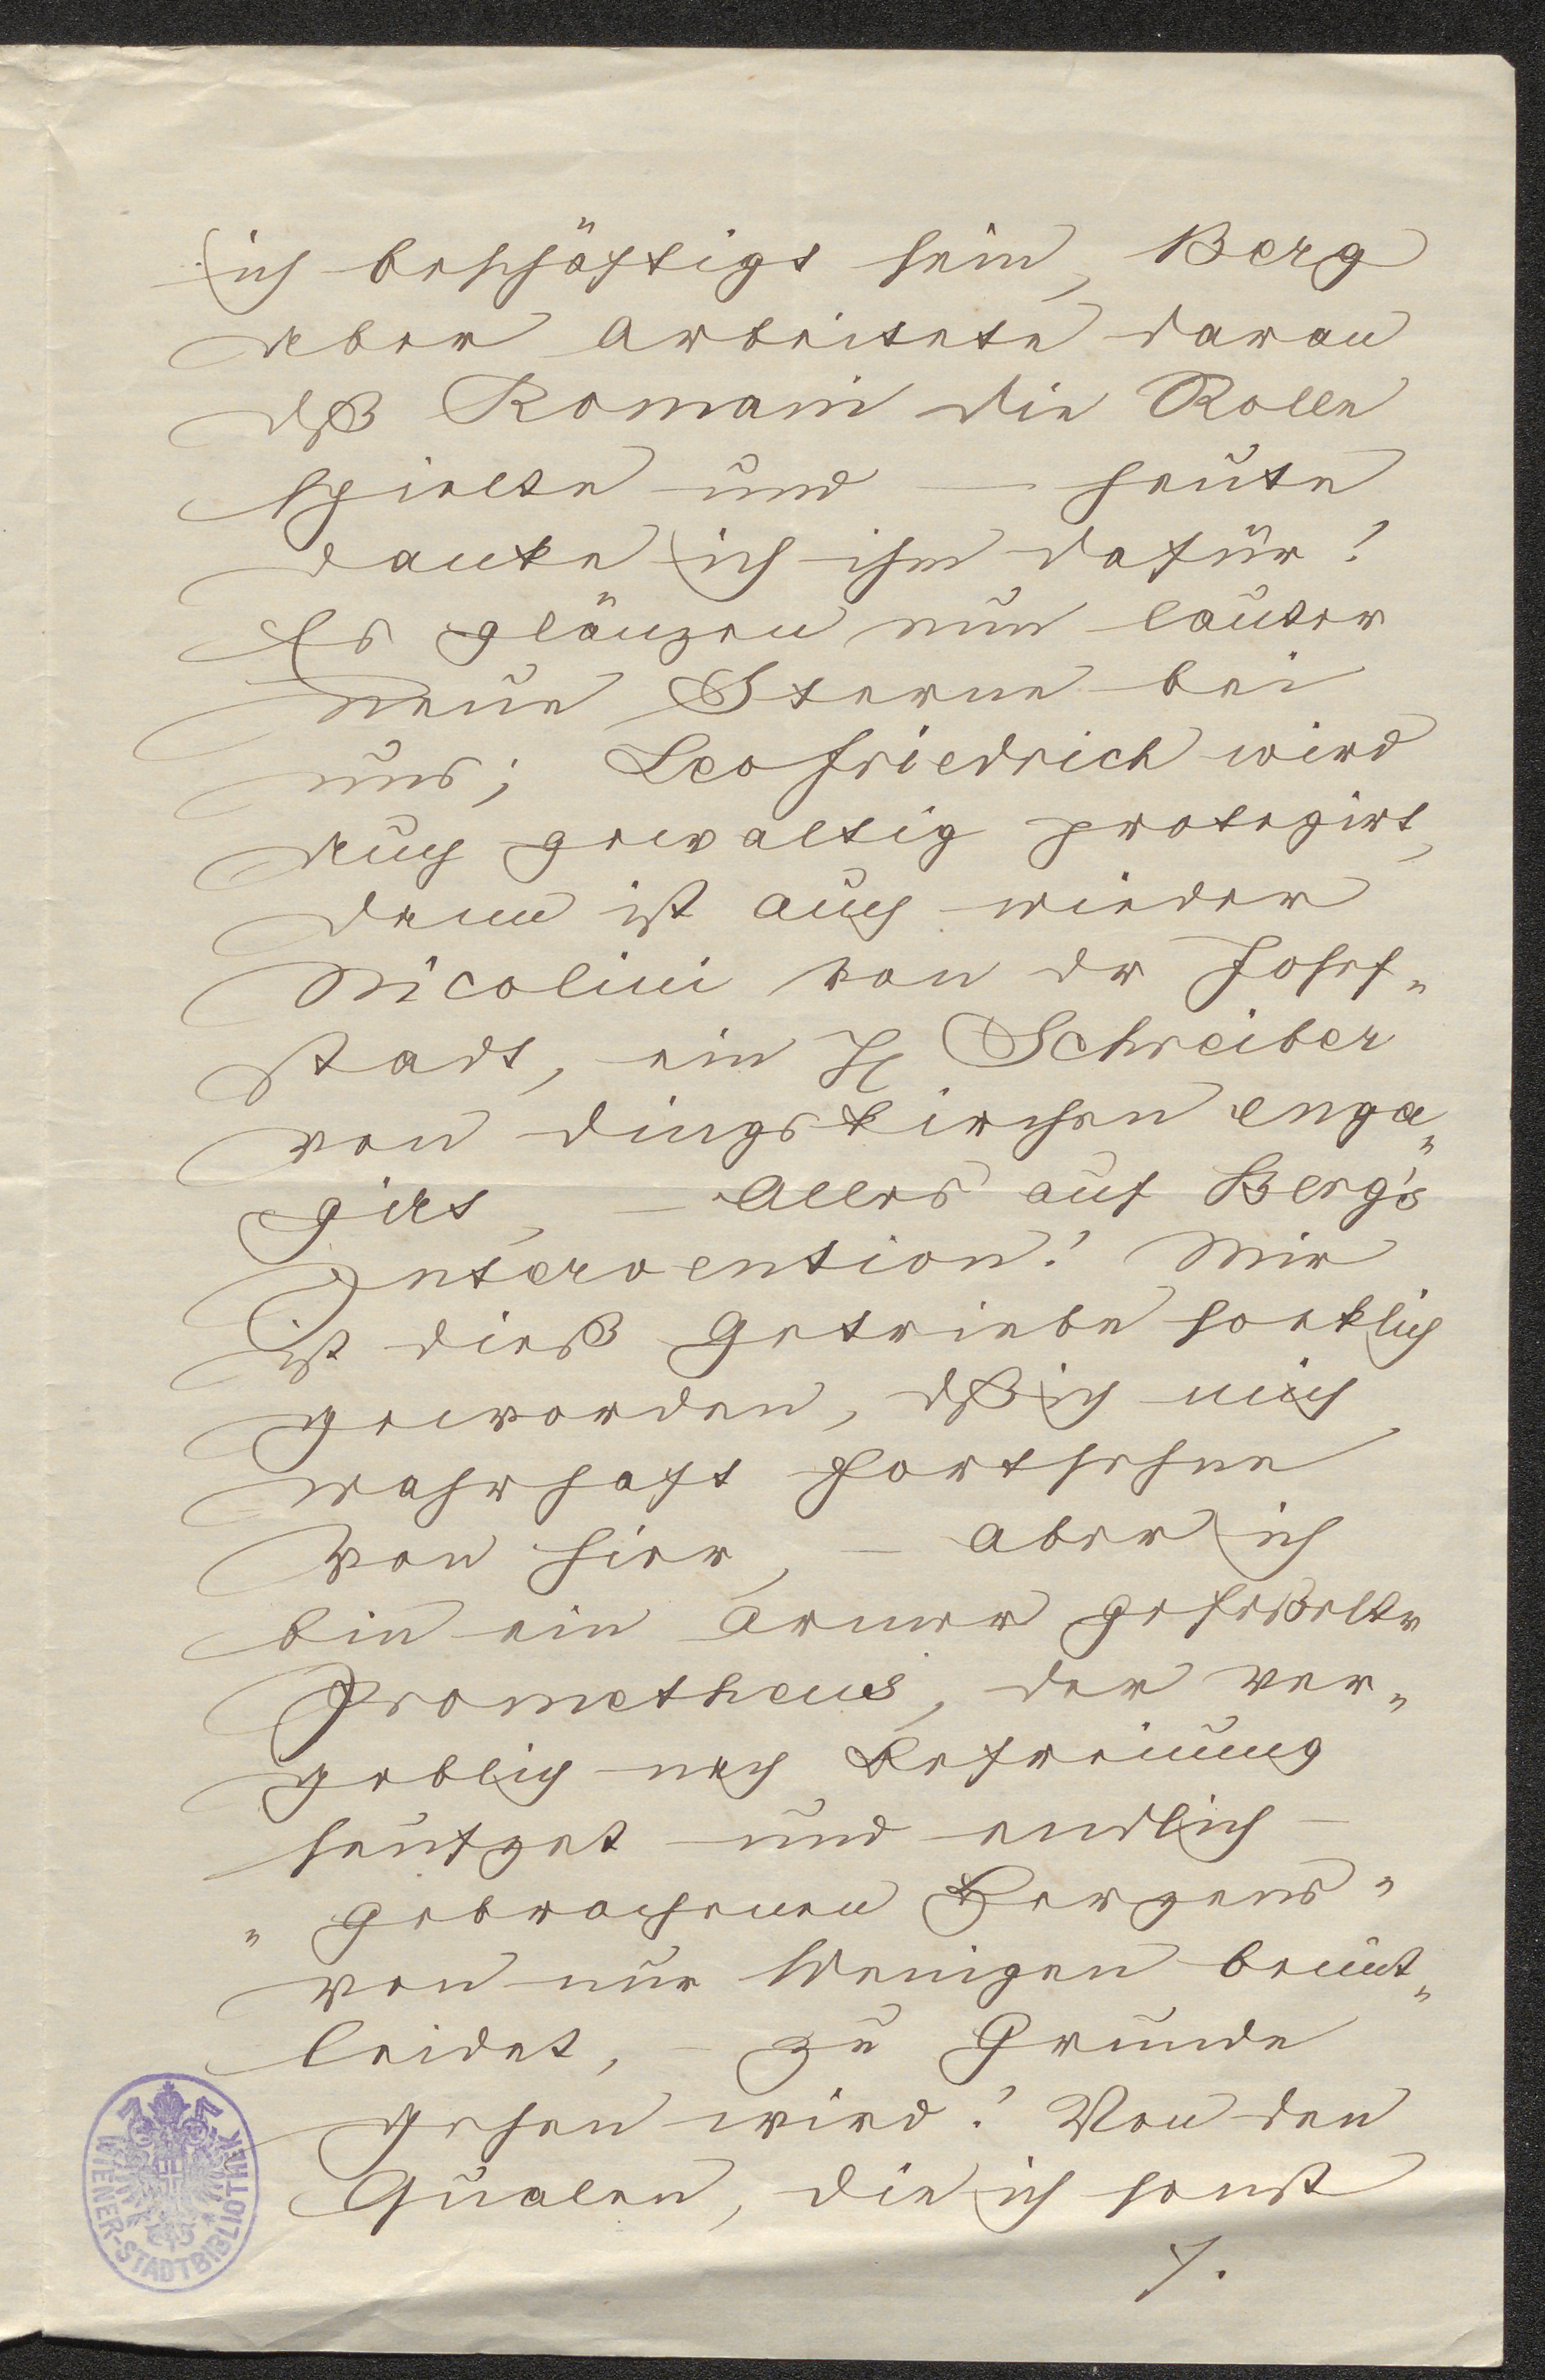 ich beschäftigt sein, Berg
aber arbeitete daran
dß Romani die Rolle
spielte und — heute
danke ich ihm dafür!
Es glänzen nun lauter
neue Sterne bei
uns; Leo Friedrich wird
auch gewaltig protegirt,
dann ist auch wieder
Nicolini von der Josef„
stadt, ein H Schreiber
von Dingskirchen enga„
girt, — Alles auf Berg's
Intervention! Mir
ist dieß Getriebe so eklich
geworden, dß ich mich
wahrhaft fortsehne
von hier, — aber ich
bin ein armer gefeßelter
Prometheus, der ver„
geblich nach Befreiung
seufzet und endlich —
„gebrochenen Herzens"
von nur Wenigen bemit„
leidet, — zu Grunde
gehen wird! Von den
Qualen, die ich sonst
/.
WIENER-STADTBIBLIOTHEK